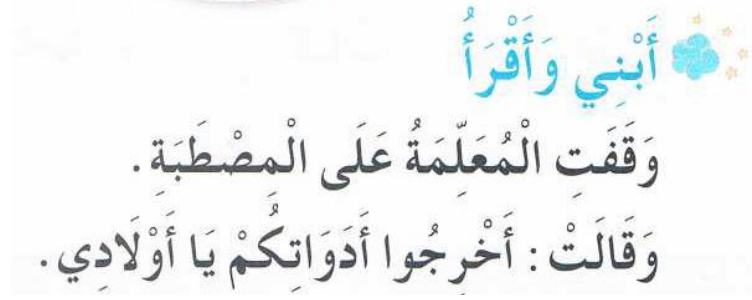 أَبْنِي وَأَقْرَأُ
وَقَفَتِ الْمُعَلِّمَةُ عَلَى الْمِصْطَبَةِ.
وَقَالَتْ: أَخْرِجُوا أَدَوَاتِكُمْ يَا أَوْلَادِي.